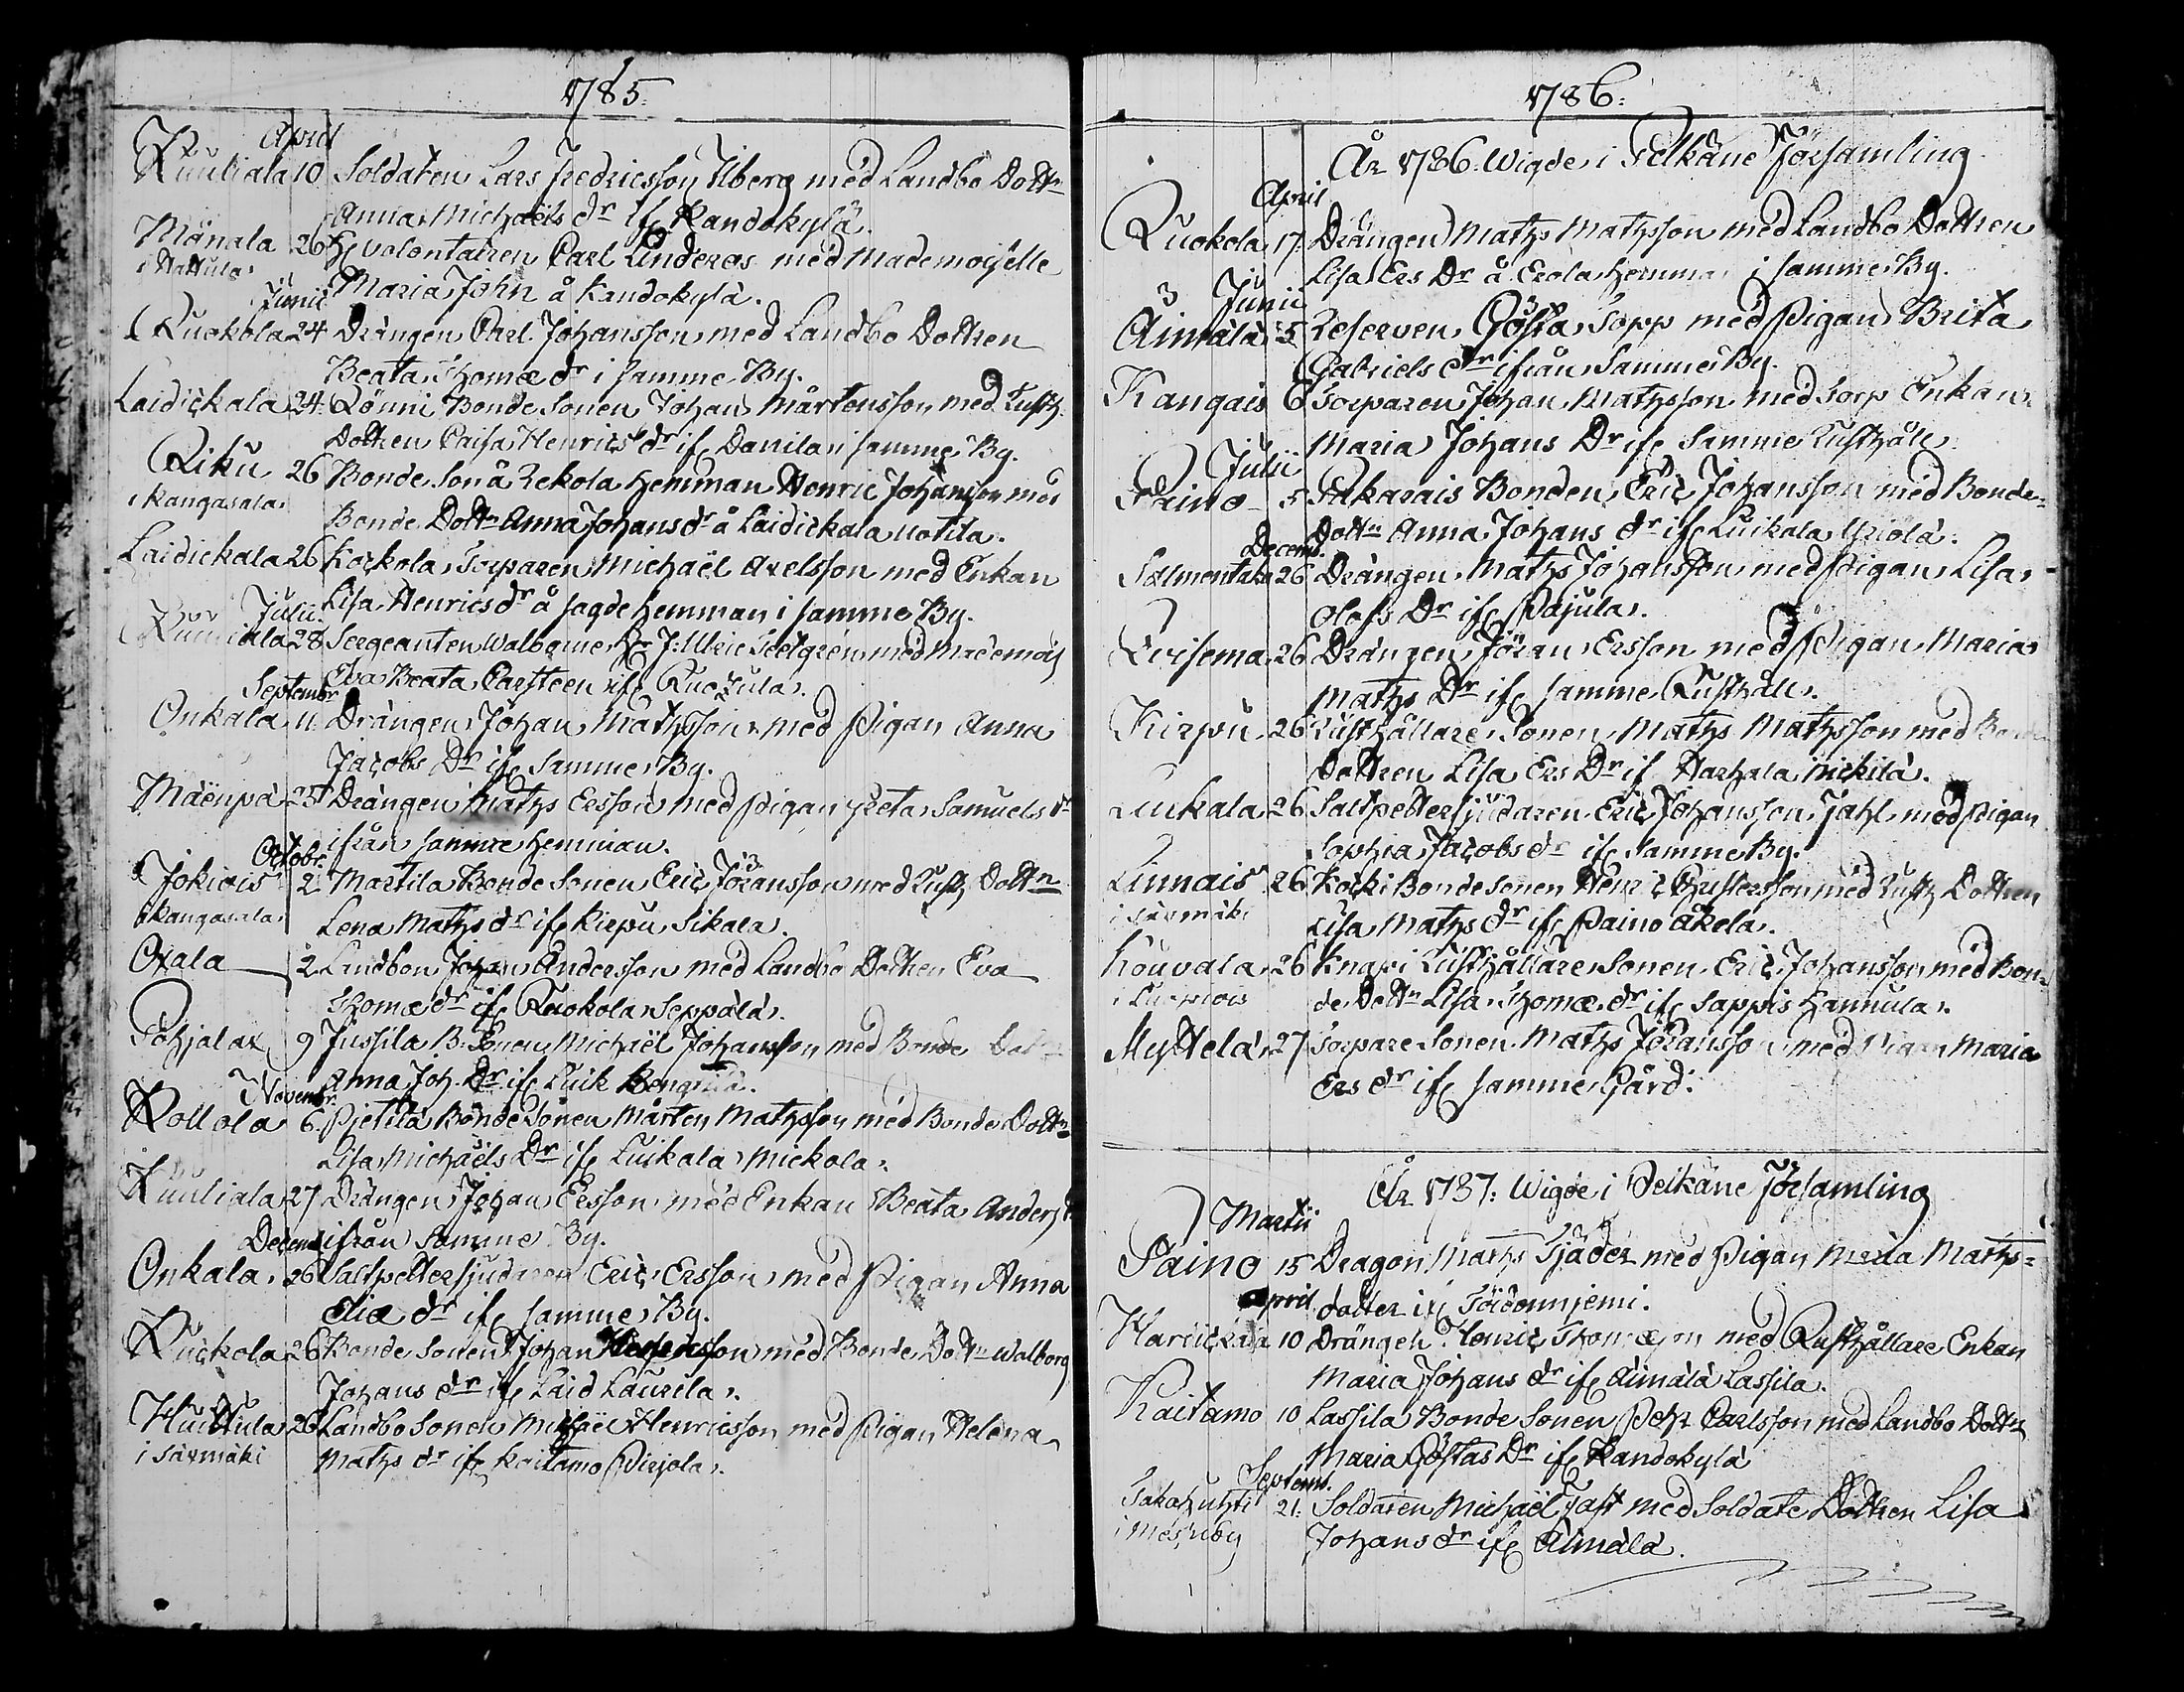 1785.
April
Kuuliala 10 Soldaten Lars Fredricsson Ilberg med Landbo Dottn
Anna Michaëls dr if Kandokylä.
Mänala 26 H volontairen Carl Linderos med Mademoiselle
i Hattula
Maria John å Kandokylä.
Junii
Ruokola 24 Drängen Carl Johansson med Landbo Dottren
Beata Thomæ dr i samme By.
Laidickala 24. Rönni Bonde Sonen Johan Mårtensson med Rusth
Dottren Caisa Henrics dr if Danila i samme By.
Riku 26 Bonde Son å Rekola Hemman Henric Johansson med
i Kangasala
Bonde Dottn Anna Johans dr å Laidickala Motila.
Laidickala 26 Kockola Torparen Michaël Axelsson med Enkan
Lisa Henrics dr å sagde Hemman i samme By.
Julii
28 Sergeanten Walborne Hr J: Ulric med Mademois
Eva Beata Carsteen if
Septembr
Onkala 11. Drängen Johan Mathsson med Pigan Anna
Jacobs Dr if samme By.
Mäenpä 25 Drängen Maths Ersson med Pigan Greta Samuels dr
ifrån samme Hemman.
Octobr.
Jokiois 2 Martila Bonde Sonen Eric Göransson med Rusth Dottn
i Kangasala
Lena Maths dr if Kirpu Sikala.
Oxala 2 Landbon Johan Andersson med Landbo Dottren Eva
Thomæ dr if Ruokola Seppälä.
Pohjalax 9 Jussila B. Sonen Michaël Johansson med Bonde
Anna Joh. Dr if Luik
Novembr.
Rollola 6. Pjetilä Bonde Sonen Mårten Mathsson med Bonde Dottn
Lisa Michaëls Dr if Luikala Mickola.
Kuuliala 27 Drängen Johan Ersson med Enkan Beata Anders
ifrån samme By.
Decemb
Onkala 26 Saltpettersjudaren Eric Ersson med Pigan Anna
Eliæ dr if samme By.
Ruokola 26 Bonde Sonen Johan med Bonde Dottn Walborg
Johans dr if Laid Laurila.
Huittula 26 Landbo Sonen Michaël Henricsson med Pigan Helena
i Säxmäki
Maths dr if Kaitamo Pirjola.
1786:
År 1786. Wigde i Pelkäne Församling
April
Ruokola 17. Drängen Maths Mathsson med Landbo Dottren
Lisa Ers Dr å Erola Hemman i samme By.
Junii
Äimälä 5 Reserven Gösta Sopp med Pigan Brita
Gabriels dr ifrån samme By.
Kangais 6 Torparen Johan Mathsson med Torp Enkan
Maria Johans Dr if samme Rusthåll
Julii
Paino 5 Pakarais Bonden Eric Johansson med Bonde
Dottn Anna Johans dr if Luikala Yriolä.
Decemb.
Salmentaka 26 Drängen Maths Johansson med Pigan Lisa
Olofs Dr if Pajula.
26 Drängen Jöran Ersson med Pigan Maria
Maths Dr if samme Rusthåll.
Kirpu 26 Rusthållare Sonen Maths Mathsson med Bonde
Dottren Lisa Ers Dr if Harhala Mickilä.
Luikala 26 Saltpettersjudaren Eric Johansson Jahl med Pigan
Sophia Jacobs dr if samme By.
Linnais 26 Kocki Bonde Sonen Henric Gustafsson med Rusth Dottren
i Säxmäki
Lisa Maths dr if Paino Äkela.
Kouvala 26 Knapi Rusthållare Sonen Eric Johansson med Bon-
de Dottn Lisa Thomæ dr if Sappis Hannula.
Myttelä 27 Torpare Sonen Maths Göransson med Pigan Maria
Ers dr if samme Gård.
År 1787: Wigde i Pelkäne Församling
Martii
Paino 15 Dragon Maths Tjäder med Pigan Maria Maths-
dotter if
April
10 Drängen Henric Thomæson med Rusthållare Enkan
Maria Johans dr if Äimälä Lassila.
Kaitamo 10 Lassila Bonde Sonen Petr Carlsson med Landbo Dottn
Maria Göstas Dr if Kandokylä
Septemb.
Sakohuhti 21. Soldaten Michaël Fast med Soldate Dottren Lisa
i Messuby
Johans dr if Äimälä.